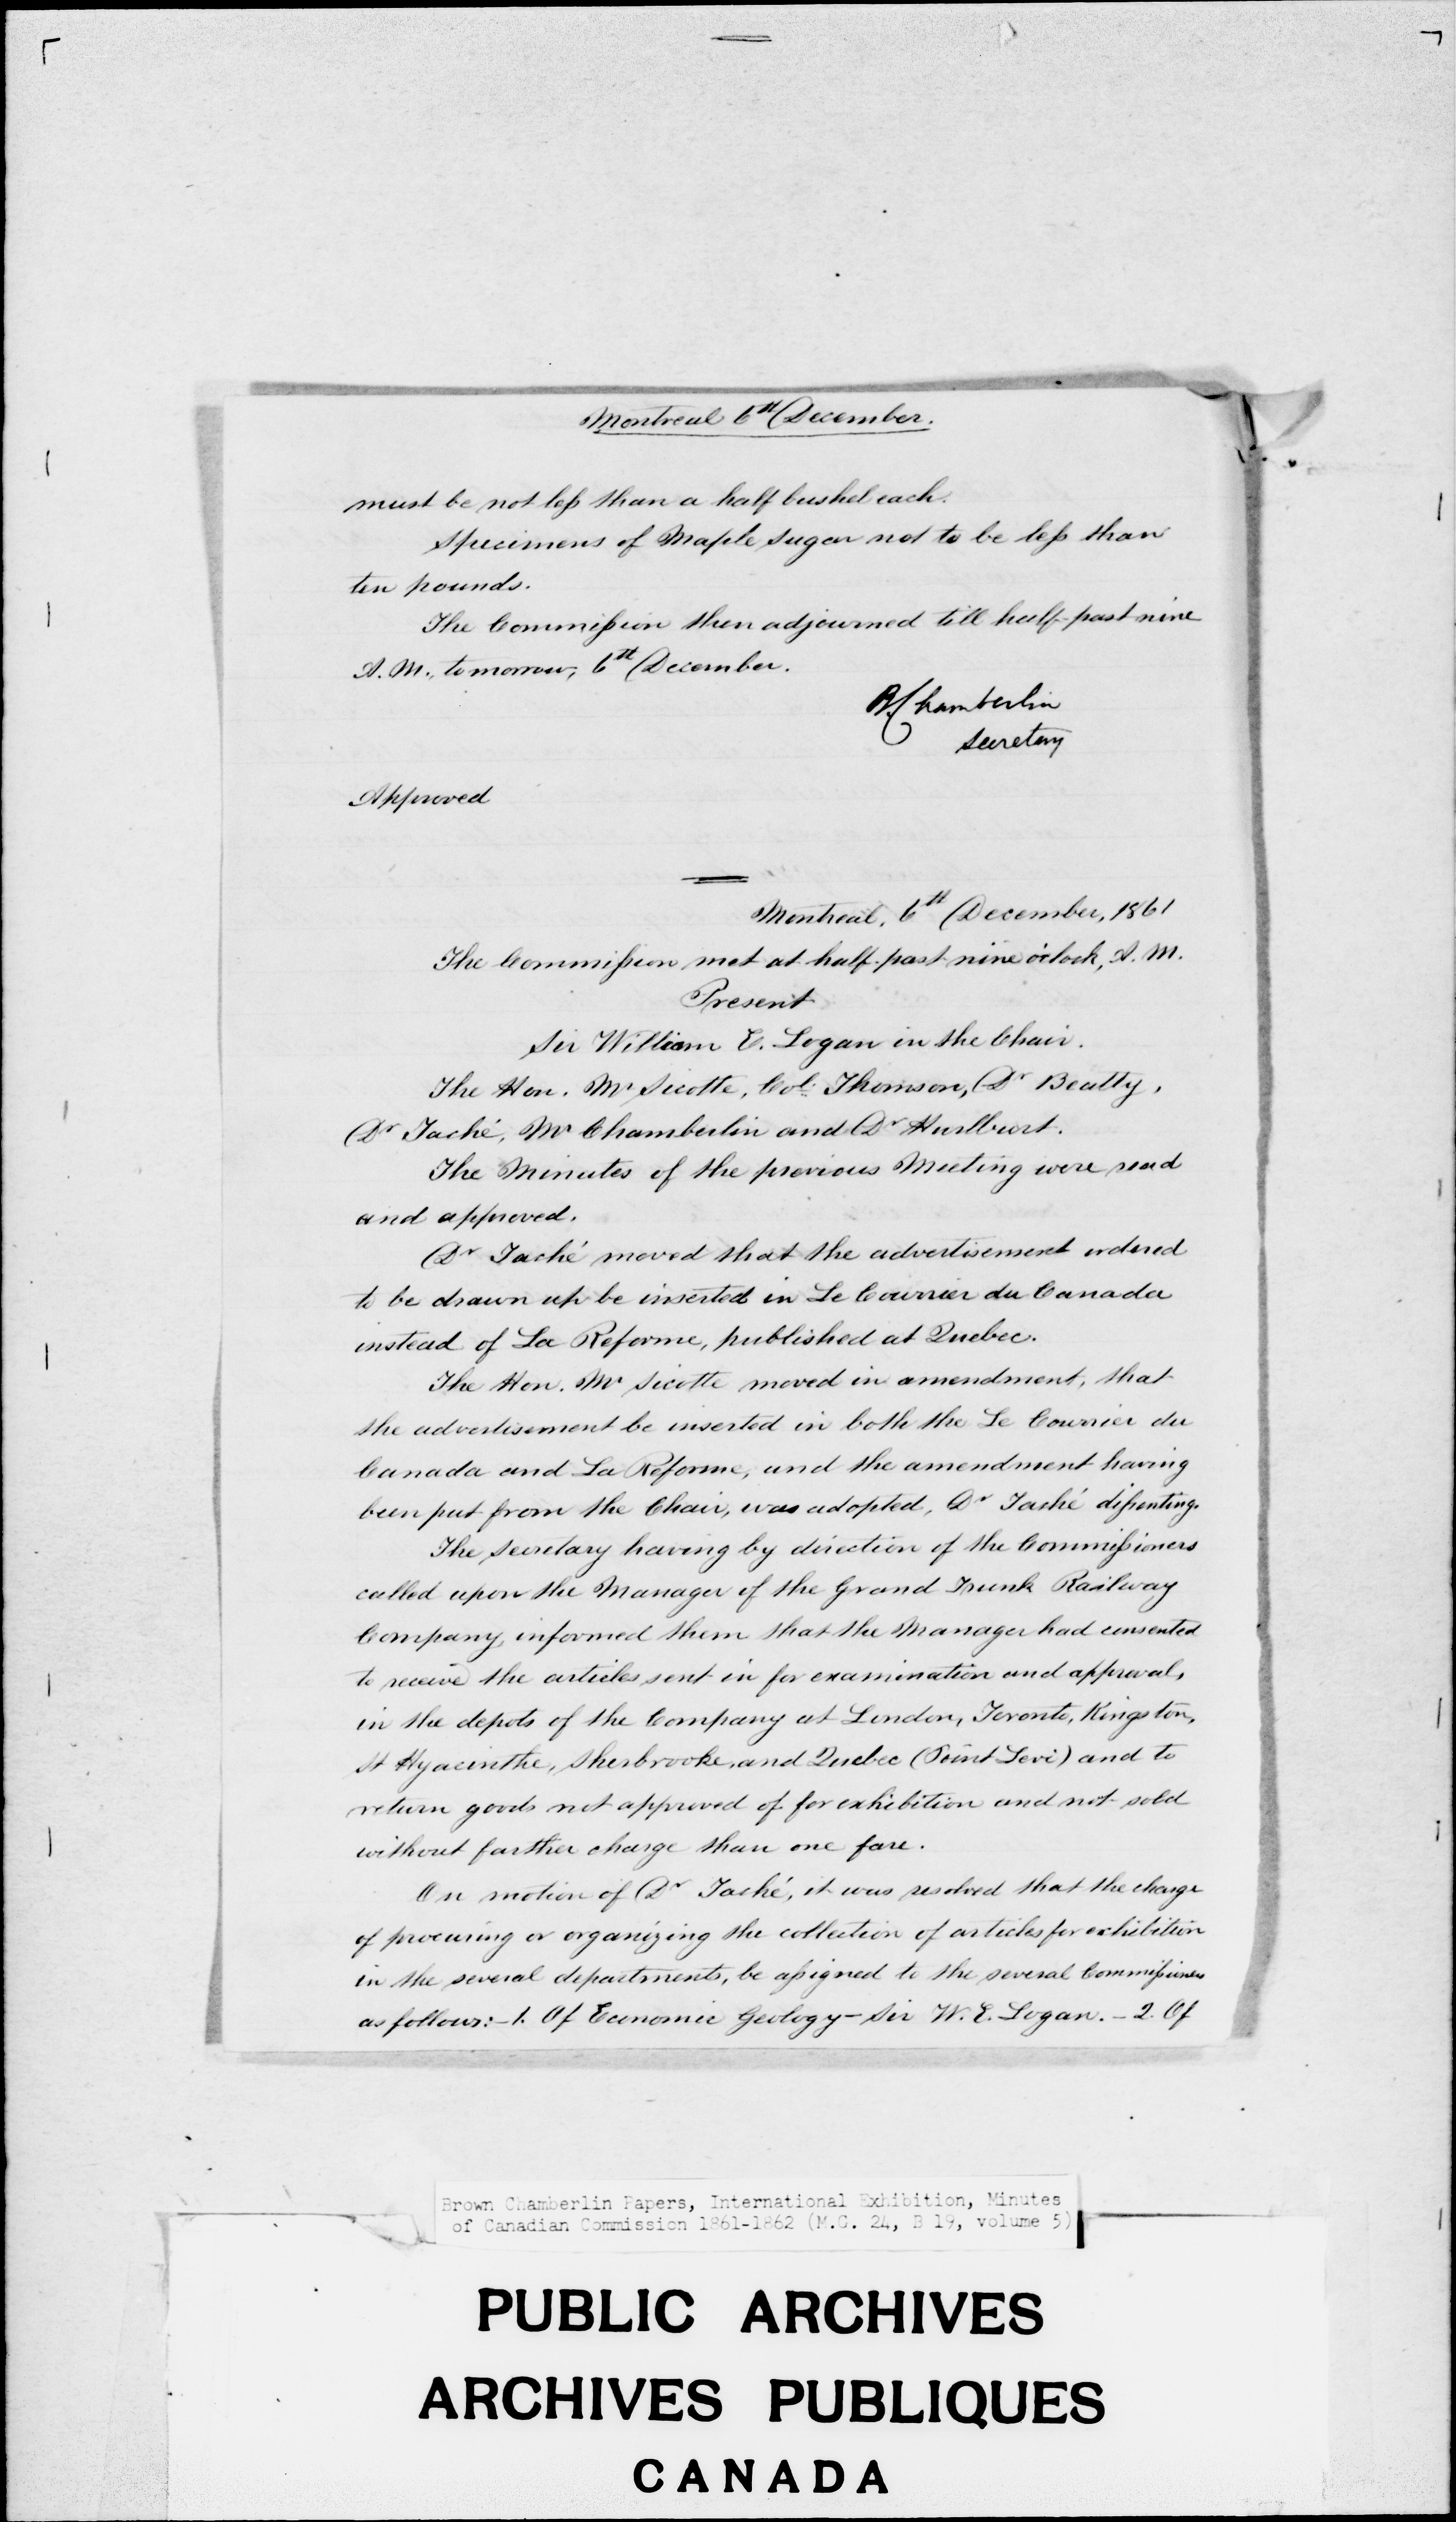 Montreal 6th December.
must be not less than a half bushel each.
Specimens of Maple Sugar not to be less than
ten pounds.
The Commission then adjourned till half-past nine
A.M., tomorrow, 6th December.
B Chamberlin
Secretary
Approved
Montreal, 6th December, 1861
The Commission met at half-past nine o'clock, A.M.
Present
Sir William E. Logan in the Chair.
The Hon. Mr Sicotte, Col. Thomson, Dr Beatty,
Dr Taché, Mr Chamberlin and Dr Hurlburt.
The Minutes of the previous Meeting were read
and approved.
Dr Taché moved that the advertisement ordered
to be drawn up be inserted in Le Courrier du Canada
instead of La Reforme, published at Quebec.
The Hon. Mr Sicotte moved in amendment, that
the advertisement be inserted in both the Le Courrier du
Canada and La Reforme, and the amendment having
been put from the Chair, was adopted, Dr Taché dissenting.
The Secretary having by direction of the Commissioners
called upon the Manager of the Grand Trunk Railway
Company, informed them that the Manager had consented
to receive the articles sent in for examination and approval,
in the depots of the Company at London, Toronto, Kingston,
St Hyacinthe, Sherbrooke, and Quebec (Point Levi) and to
return goods not approved of for exhibition and not sold
without farther charge than one fare.
On motion of Dr Taché, it was resolved that the charge
of procuring or organizing the collection of articles for exhibition
in the several departments, be assigned to the several Commissioners
as follows:- 1. Of Economic Geology - Sir W. E. Logan. - 2. Of
Brown Chamberlin Papers, International Exhibition, Minutes
of Canadian Commission 1861-1862 (M.G. 24, B 19, volume 5)
PUBLIC ARCHIVES
ARCHIVES PUBLIQUES
CANADA